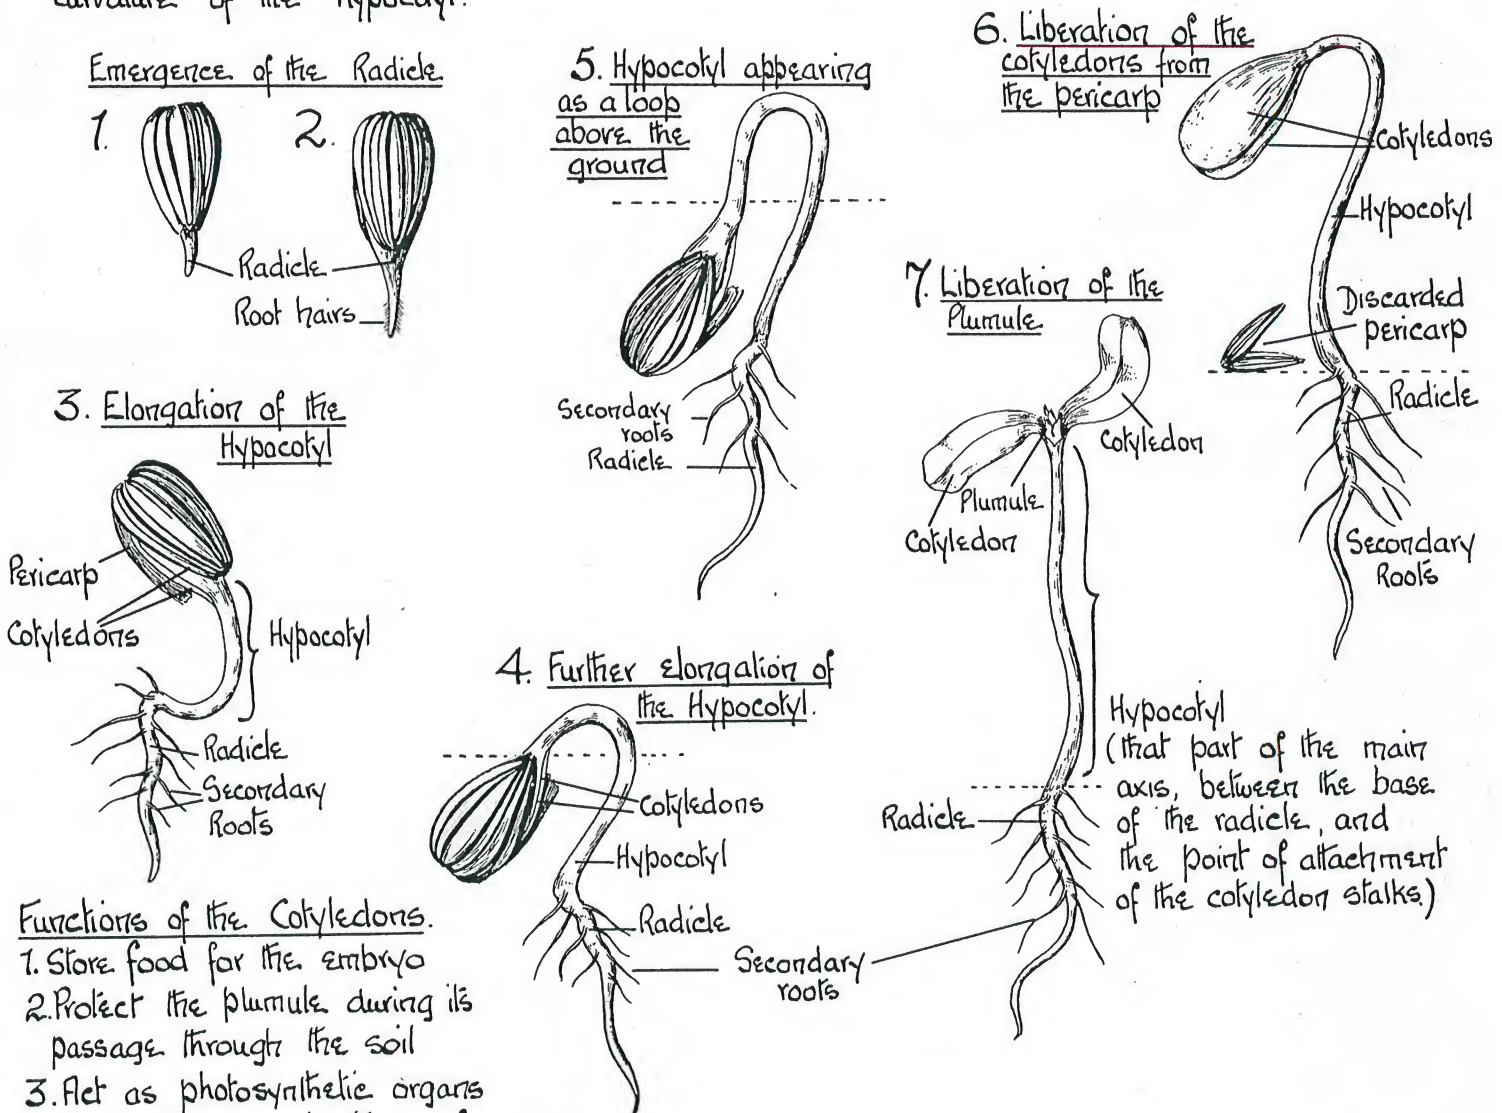 curvature of the hypocotyl.
Emergence of the Radicle
1.
2.
Radicle
Root hairs
3. Elongation of the
Hypocotyl
Pericarp
Cotyledons
Hypocotyl
Radicle
Secondary
Roots
Functions of the Cotyledons.
1. Store food for the embryo
2. Protect the plumule during its
passage through the soil
3. Act as photosynthetic organs
5. Hypocotyl appearing
as a loop
above the
ground
Secondary
roots
Radicle
4. Further elongation of
the Hypocotyl.
Cotyledons
Hypocotyl
Radicle
Secondary
roots
6. Liberation of the
cotyledons from
the pericarp
Cotyledons
Hypocotyl
Discarded
pericarp
Radicle
Secondary
Roots
7. Liberation of the
Plumule
Cotyledon
Plumule
Cotyledon
Hypocotyl
(that part of the main
axis, between the base
of the radicle, and
the point of attachment
of the cotyledon stalks.)
Radicle